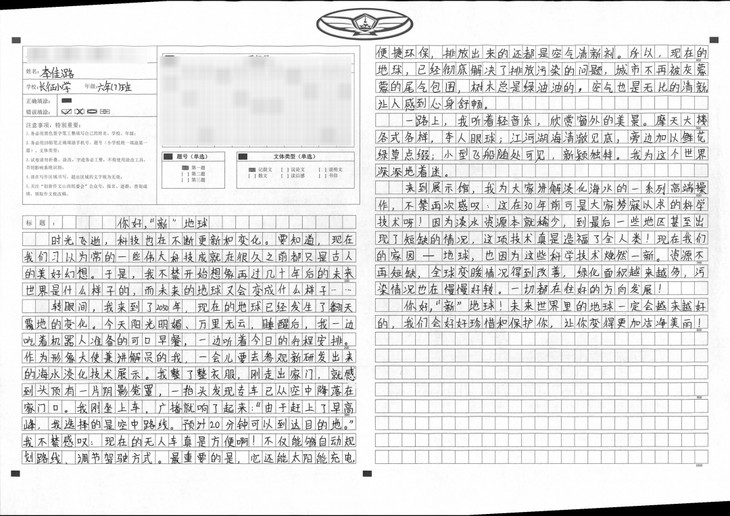 姓名：李佳潞
学校：长征小学 年级：六年(1)班
正确填涂：
错误填涂：
注意事项，特别重要：
题号（单选）
文体类型（单选）
第一题
第二题
第三题
记叙文
议论文
说明文
散文
读后感
书信
标题：你好，“新”地球
时光飞逝，科技也在不断更新和变化。要知道，现在
我们习以为常的一些伟大科技成就在很久之前都只是古人
的美好幻想。于是，我不禁开始想像再过几十年后的未来
世界是什么样子的，而未来的地球又会变成什么样子……
转眼间，我来到了2050年，现在的地球已经发生了翻天
覆地的变化。今天阳光明媚、万里无云，睡醒后，我一边
吃着机器人准备的可口早餐，一边听着今日的行程安排。
作为形象大使兼讲解员的我，一会儿要去参观新研发出来
的海水淡化技术展示。我整了整衣服，刚走出家门，就感
到头顶有一片阴影笼罩，一抬头发现专车已从空中降落在
家门口。我刚坐上车，广播就响了起来：“由于赶上了早高
峰，我选择的是空中路线。预计20分钟可以到达目的地。”
我不禁感叹：现在的无人车真是方便啊！不仅能够自动规
划路线，调节驾驶方式。最重要的是，它还能太阳能充电
便捷环保，排放出来的还都是空气清新剂。所以，现在的
地球，已经彻底解决了排放污染的问题，城市不再被灰蒙
蒙的尾气包围，树木总是绿油油的，空气也是无比的清新
让人感到心身舒畅。
一路上，我听着轻音乐，欣赏窗外的美景。摩天大楼
各式各样，夺人眼球；江河湖海清澈见底，旁边加以鲜花
绿草点缀；小型飞船随处可见，新颖独特。我为这个世界
深深地着迷。
来到展示馆，我为大家讲解淡化海水的一系列高端操
作，不禁再次感叹：这在30年前可是大家梦寐以求的科学
技术呀！因为淡水资源本就稀少，到最后一些地区甚至出
现了短缺的情况，这项技术真是造福了全人类！现在我们
的家园——地球，也因为这些科学技术焕然一新。资源不
再短缺，全球变暖情况得到改善，绿化面积越来越多，污
染情况也在慢慢好转。一切都在往好的方向发展！
你好，“新”地球！未来世界里的地球一定会越来越好
的，我们会好好珍惜和保护你，让你变得更加洁海美丽！